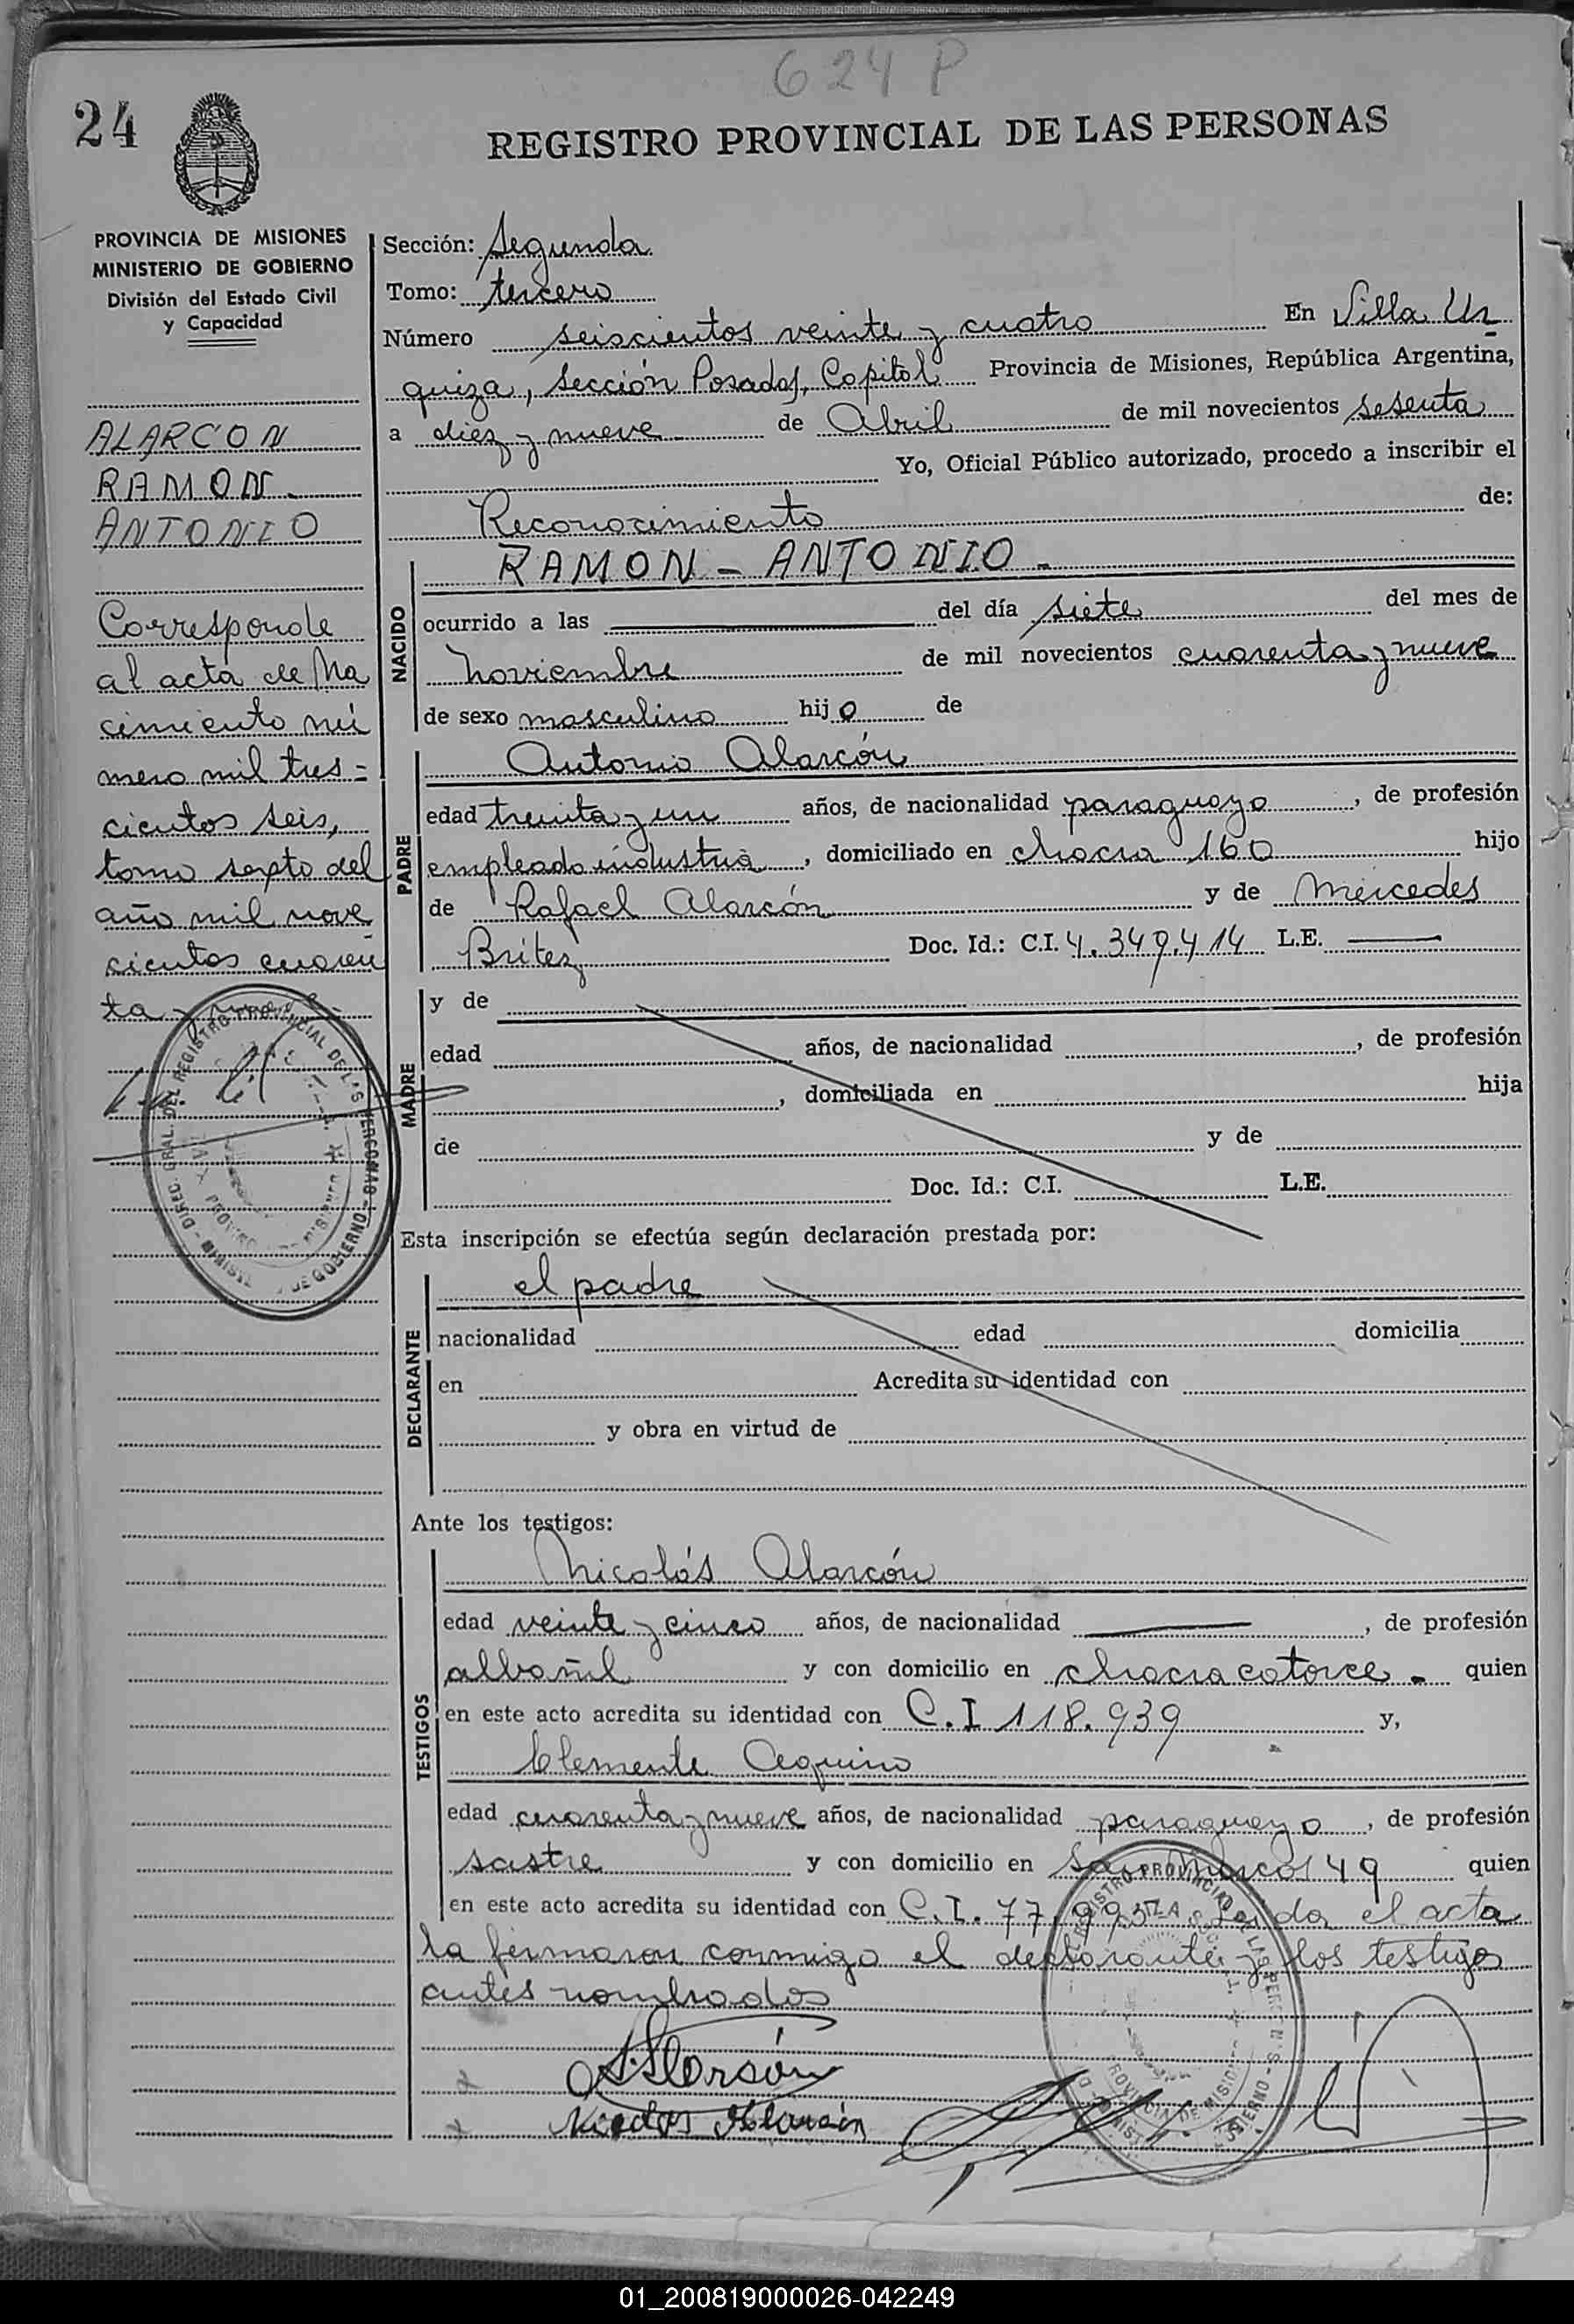 624 P
24
REGISTRO PROVINCIAL DE LAS PERSONAS
PROVINCIA DE MISIONES
MINISTERIO DE GOBIERNO
División del Estado Civil
y Capacidad
ALARCON
RAMON -
ANTONIO
Corresponde
al acta de Na
cimiento nú
mero mil tres =
cientos seis,
tomo sexto del
año mil nove
cientos cuaren
ta y nueve
Sección: Segunda
Tomo: tercero
Número seiscientos veinte y cuatro En Villa Ur
quiza, Sección Posadas, Capital Provincia de Misiones, República Argentina,
a diez y nueve de Abril de mil novecientos sesenta
Yo, Oficial Público autorizado, procedo a inscribir el
Reconocimiento de:
NACIDO
RAMON - ANTONIO -
ocurrido a las del día siete del mes de
Noviembre de mil novecientos cuarenta y nueve
de sexo masculino hijo de
PADRE
Antonio Alarcón
edad treinta y un años, de nacionalidad paraguayo, de profesión
empleado industria, domiciliado en chacra 160 hijo
de Rafael Alarcón y de Mercedes
Britez Doc. Id.: C.I. 4.349.414 L.E.
MADRE
y de
edad años, de nacionalidad , de profesión
, domiciliada en hija
de y de
Doc. Id.: C.I. L.E.
Esta inscripción se efectúa según declaración prestada por:
DECLARANTE
el padre
nacionalidad edad domicilia
en Acredita su identidad con
y obra en virtud de
Ante los testigos:
TESTIGOS
Nicolás Alarcón
edad veinte y cinco años, de nacionalidad , de profesión
albañil y con domicilio en chacra catorce - quien
en este acto acredita su identidad con C.I 118.939 y,
Clemente Aquino
edad cuarenta y nueve años, de nacionalidad paraguayo, de profesión
sastre y con domicilio en San Marcos 49 quien
en este acto acredita su identidad con C.I. 77.993 Leída el acta
la firmaron conmigo el declarante y los testigos
antes nombrados
A. Alarcón
Nicolas Alarcón
01_200819000026-042249